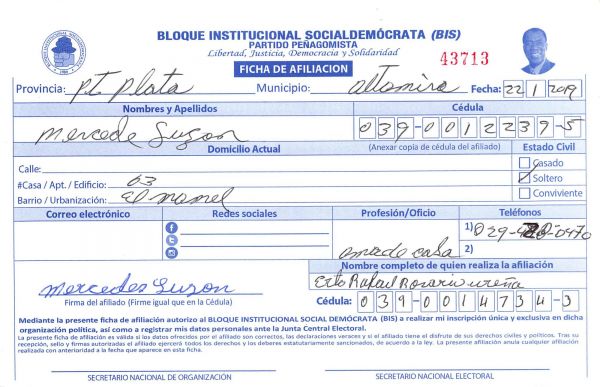 BLOQUE INSTITUCIONAL SOCIALDEMÓCRATA (BIS)
PARTIDO PEÑAGOMISTA
Libertad, Justicia, Democracia y Solidaridad
43713
FICHA DE AFILIACION
Provincia: Pt Plata Municipio: Altamira Fecha: 22/1/2019
Nombres y Apellidos Cédula
Mercede Suzon 039-0012239-5
Domicilio Actual (Anexar copia de cédula del afiliado) Estado Civil
Calle: Casado
#Casa / Apt. / Edificio: 63 Soltero
Barrio / Urbanización: El mamel Conviviente
Correo electrónico Redes sociales Profesión/Oficio Teléfonos
1) 029-420-0470
amade casa 2)
Nombre completo de quien realiza la afiliación
Mercedes Suzon Rafael Rosario ureña
Firma del afiliado (Firme igual que en la Cédula) Cédula: 039-0014734-3
Mediante la presente ficha de afiliación autorizo al BLOQUE INSTITUCIONAL SOCIAL DEMÓCRATA (BIS) a realizar mi inscripción única y exclusiva en dicha
organización política, así como a registrar mis datos personales ante la Junta Central Electoral.
La presente ficha de afiliación es válida si las datos ofrecidos por el afiliado son correctos, las declaraciones veraces y si el afiliado tiene el disfrute de sus derechos civiles y políticos. Tras su
recepción, sello y firmas autorizadas el afiliado ejercerá todos los derechos y los deberes estatutariamente sancionados, de acuerdo a la ley. La presente afiliación anula cualquier afiliación
realizada con anterioridad a la fecha que aparece en esta ficha.
SECRETARIO NACIONAL DE ORGANIZACIÓN SECRETARIO NACIONAL ELECTORAL